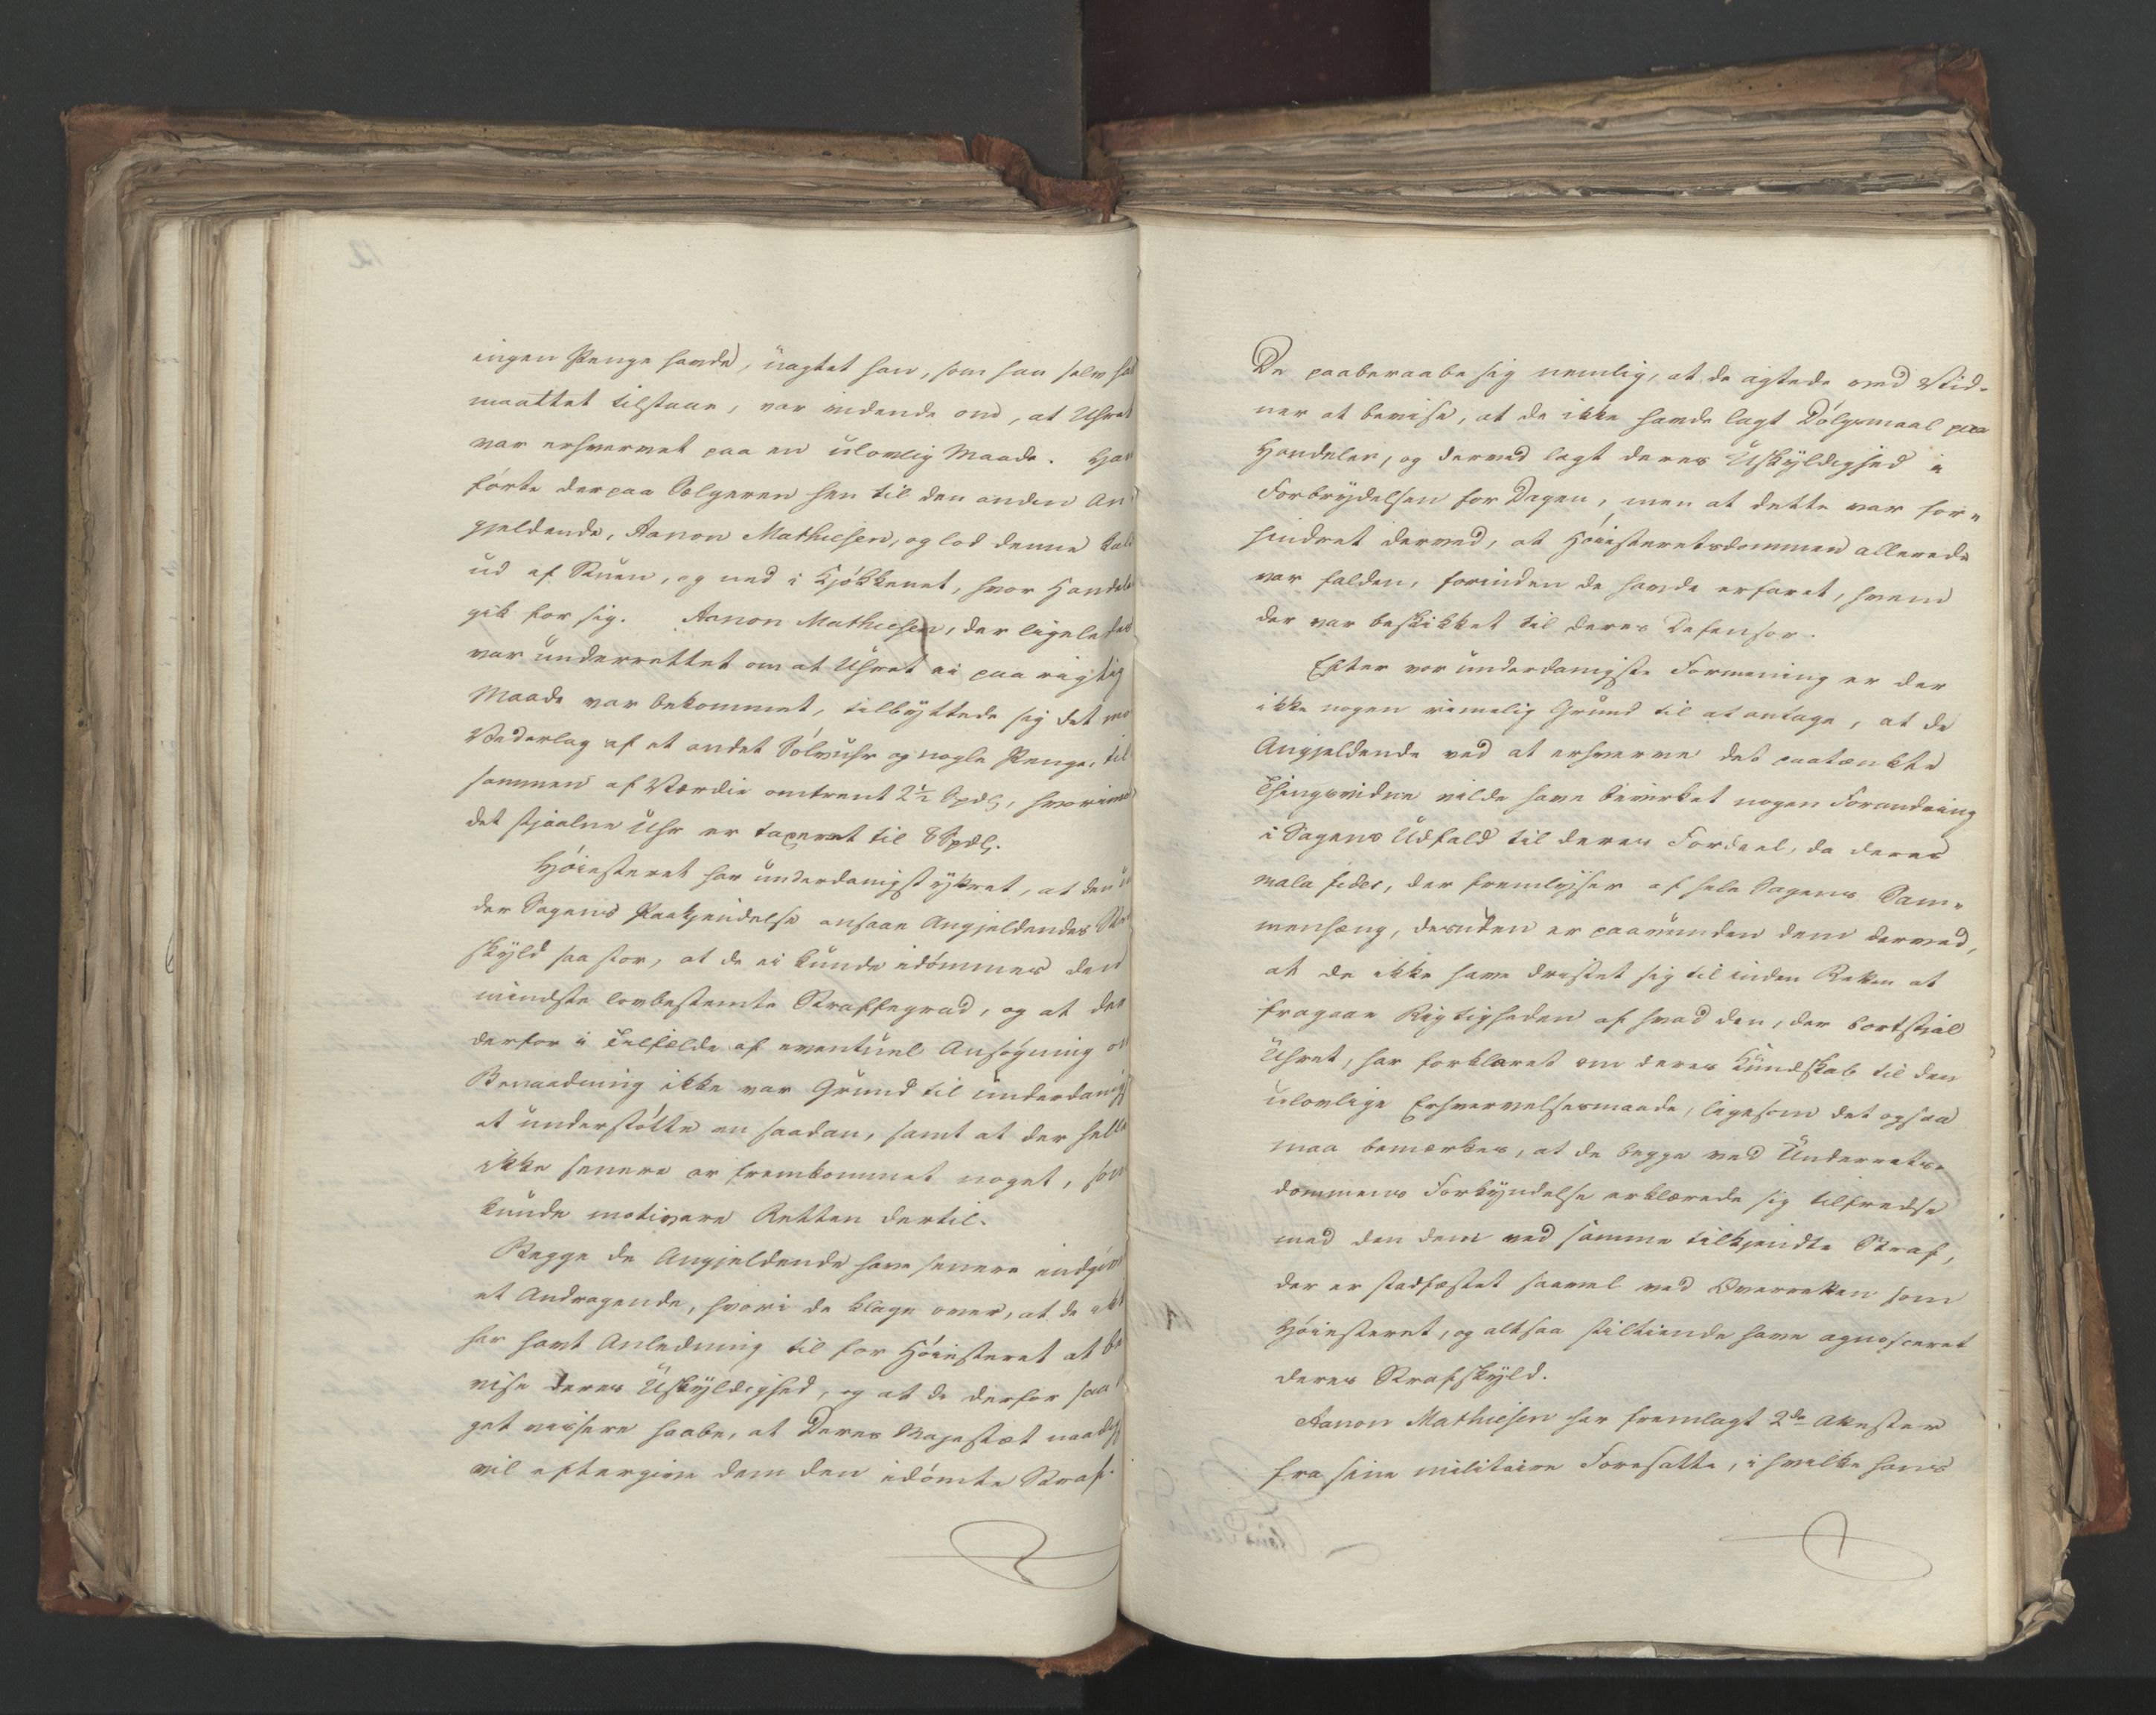 ingen Penge havde, uagtet han, som han selv ha
maattet tilstaae, var vidende om, at Uhret
var erhvervet paa en ulovlig Maade. Han
førte derpaa Sælgeren hen til den anden An
gjeldende, Aanon Mathiesen, og lod denne kald
ud af Stuen, og ned i Kjøkkenet, hvor Handele
gik for sig. Aanon Mathiesen, der ligeledes
var underrettet om at Uhret ei paa rigtig
Maade var bekommet, tilbyttede sig det mo
Vederlag af et andet Sølvuhr og nogle Penge, til
sammen af Værdie omtrent 2½ Spdl, hvorimod
det stjaalne Uhr er taxeret til 8 Spdl.
Høiesteret har underdanigst yttret, at den un
der Sagens Paakjendelse ansaae Angjeldendes Stra
skyld saa stor, at de ei kunde idømmes den
mindste lovbestemte Straffegrad, og at der
derfor i Tilfælde af eventuel Ansøgning om
Benaadning ikke var Grund til underdanigst
at understøtte en saadan, samt at der helle
ikke senere er fremkommet noget, som
kunde motivere Retten dertil.
Begge de Angjeldende have senere indgivet
et Andragende, hvori de klage over, at de ikke
har havt Anledning til for Høiesteret at be
vise deres Uskyldighed, og at de derfor saa
get vissere haabe, at Deres Majestæt naadigst
vil eftergive dem den idømte Straf.
De paaberaabe sig nemlig, at de agtede med Vid-
ner at bevise, at de ikke havde lagt Dølgsmaal paa
Handelen, og derved lagt deres Uskyldighed i
Forbrydelsen for Dagen, men at dette var for-
hindret derved, at Høiesteretsdommen allerede
var falden, forinden de havde erfaret, hvem
der var beskikket til deres Defensor.
Efter vor underdanigste Formening er der
ikke nogen rimelig Grund til at antage, at de
Angjeldende ved at erhverve det paatænkte
Thingsvidne vilde have bevirket nogen Forandring
i Sagens Udfald til deres Fordeel, da deres
mala fides, der fremlyser af hele Sagens Sam-
menhæng, desuden er paavunden dem derved,
at de ikke have dristet sig til inden Retten at
fragaae Rigtigheden af hvad den, der bortstjal
Uhret, har forklaret om deres Kundskab til den
ulovlige Erhvervelsesmaade, ligesom det ogsaa
maa bemærkes, at de begge ved Underrets-
dommens Forkyndelse erklærede sig tilfredse
med den dem ved samme tilkjendte Straf,
der er stadfæstet saavel ved Overretten som
Høiesteret, og altsaa stiltiende have agnosceret
deres Strafskyld.
Aanon Mathiesen har fremlagt 2de Attester
fra sine militaire Foresatte, i hvilke hans